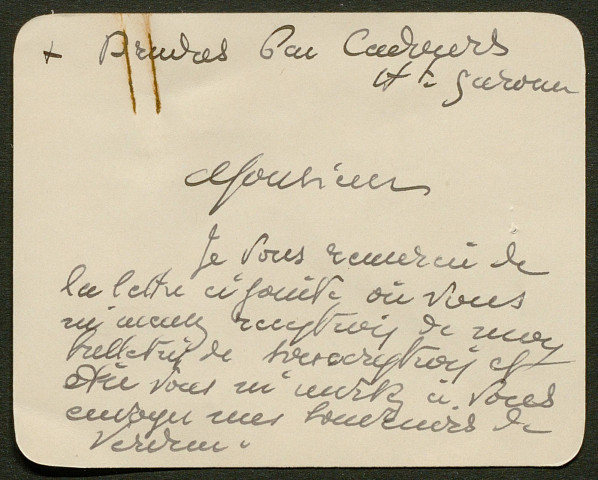 + Drudas par Cadours
Hte Garonne
Monsieur
Je vous remercie de
la lettre ci jointe, où vous
m'accusez reception de mon
bulletin de souscription et
où vous m'invitez à vous
envoyer mes souvenirs de
Verdun.